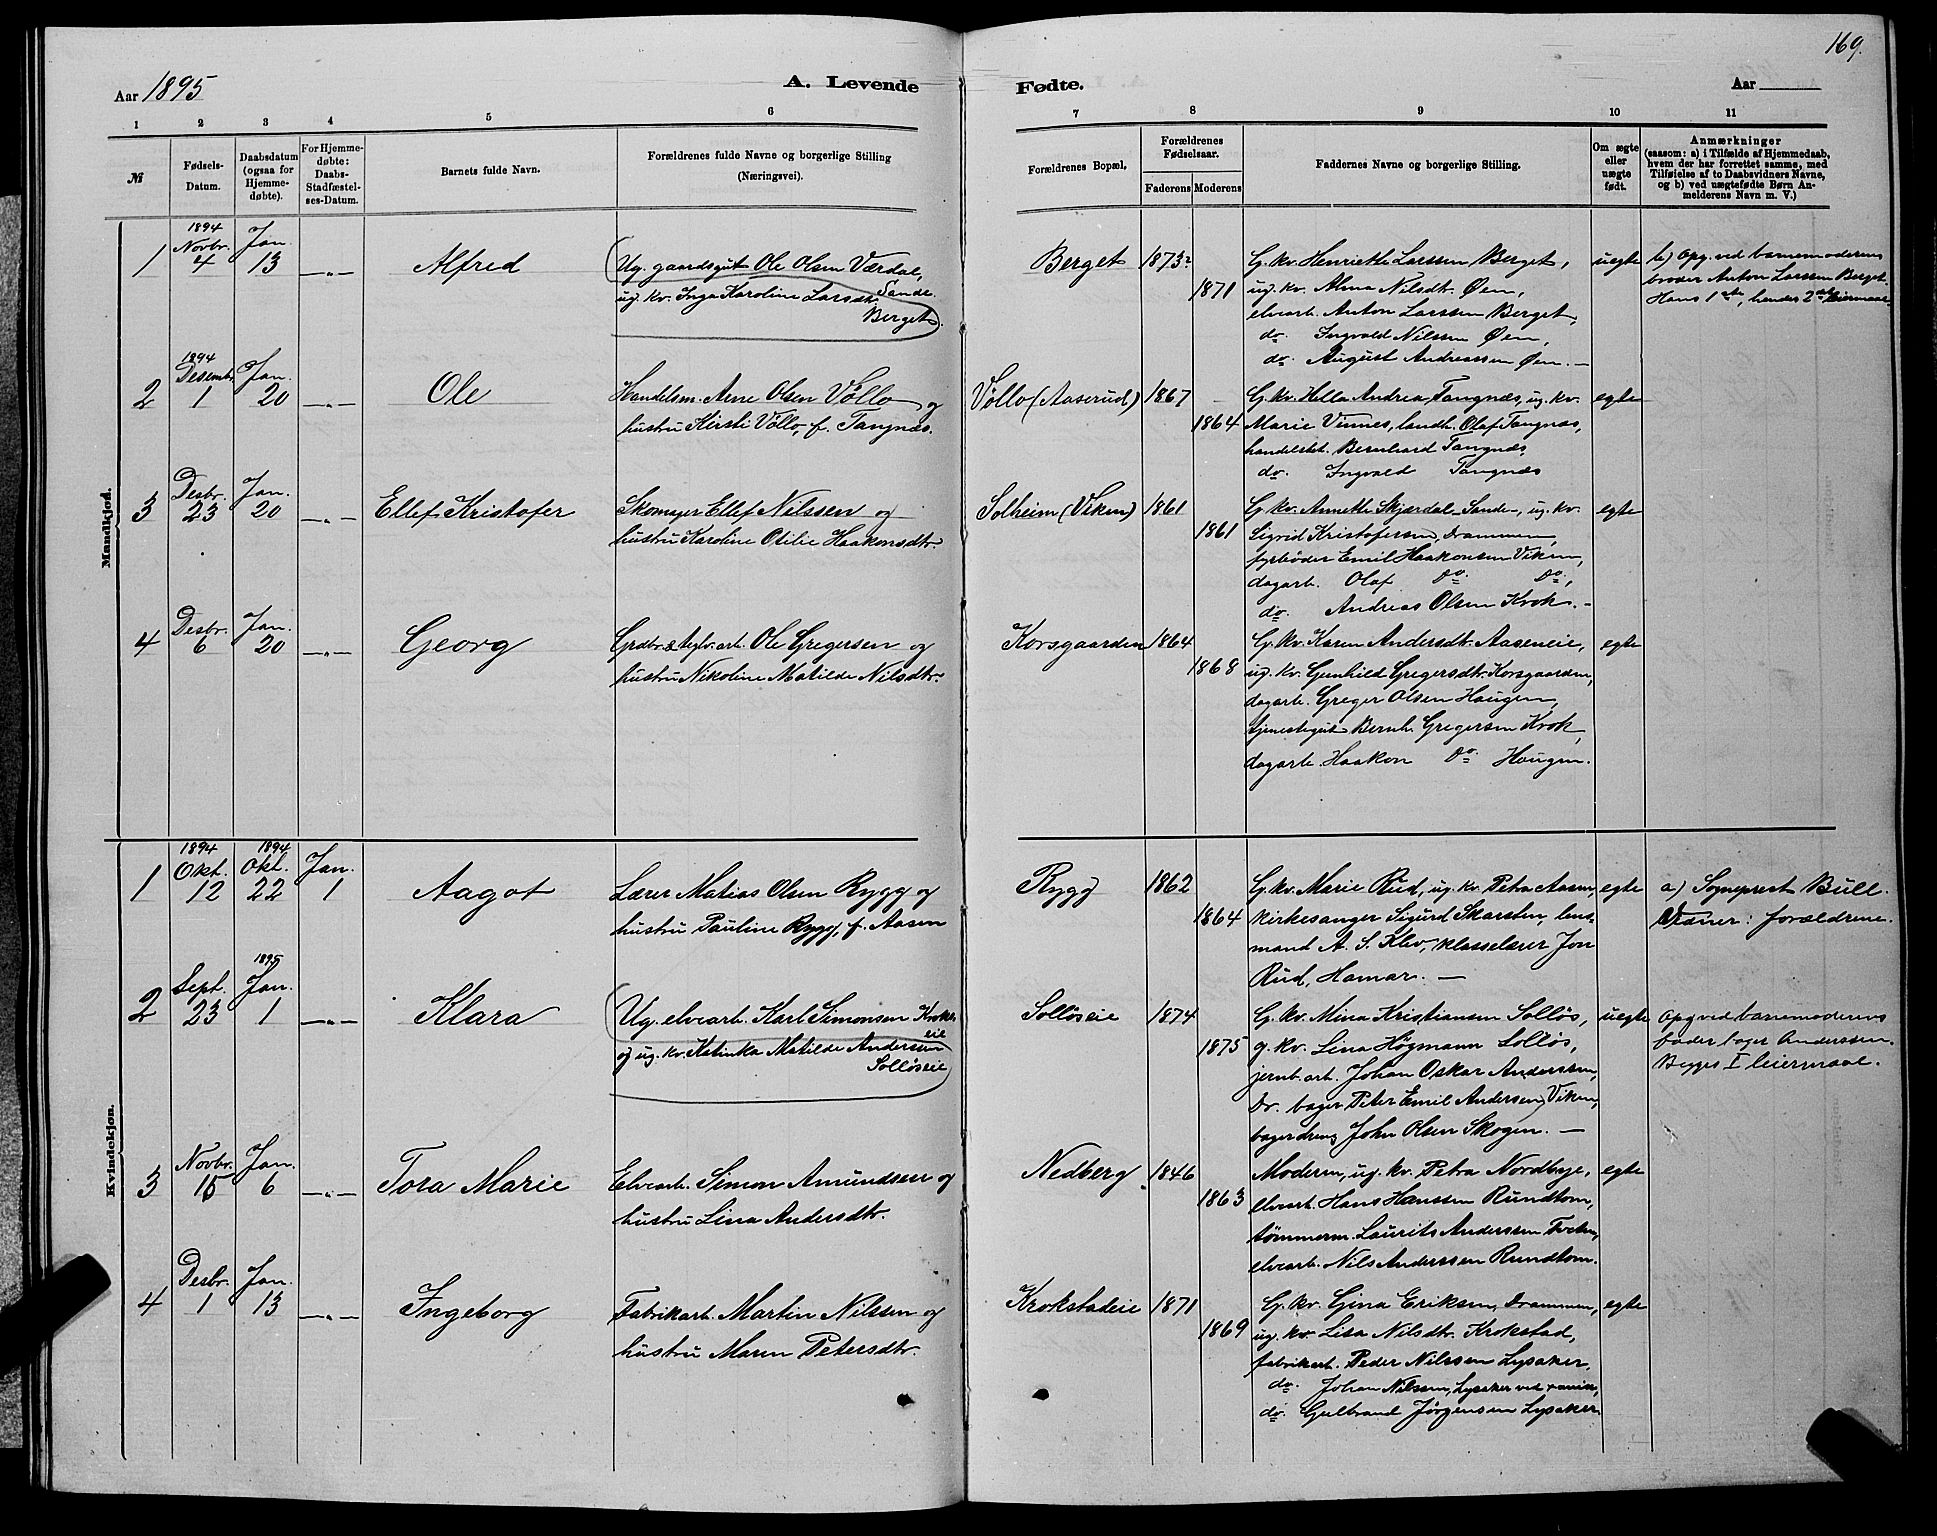 169.
Aar 1895
A. Levende
Fødte.
Aar
1 2 3 4 5 6
7 8 9 10 11
№
Fødsels-
Datum.
Daabsdatum
(ogsaa for
Hjemme-
døbte).
For Hjemme-
døbte:
Daabs-
Stadfæstel-
ses-Datum.
Barnets fulde Navn.
Forældrenes fulde Navne og borgerlige Stilling
(Næringsvei).
Forældrenes Bopæl,
Forældrenes
Fødselsaar.
Faderens Moderens
Faddernes Navne og borgerlige Stilling.
Om ægte
eller
uægte
født.
Anmærkninger
(saasom: a) i Tilfælde af Hjemmedaab,
hvem der har forrettet samme, med
Tilføielse af to Daabsvidners Navne,
og b) ved uægtefødte Børn An-
melderens Navn m. V.)
Mandkjøn.
1
1894
Novbr.
4
Jan.
13
—„—
Alfred
Ug. gaardsgut Ole Olsen Værdal,
Sande
ug. kv. Inga Karoline Larsdtr.
Berget.
Berget
1873
1871
G. kv. Henriette Larssen Berget,
ug. kv. Alma Nilsdtr. Øen,
elvearb. Anton Larssen Berget,
do. Ingvald Nilssen Øen,
do. August Andreassen Øen. —
uegte
b) Opg. ved barnemoderens
broder Anton Larssen Berget.
Hans 1ste, hendes 2det leiermaal
2
1894
Desembr.
1
Jan.
20
—„—
Ole
Handelsm. Arne Olsen Vøllo og
hustru Kirsti Vøllo, f. Tangnæs.
Vøllo (Aaserud)
1867
1864
G. kv. Hella Andrea Tangnæs, ug. kv.
Marie Vinnes, landh. Olaf Tangnæs,
handelsbet. Bernhard Tangnæs,
do. Ingvald Tangnæs
egte
3
Desbr.
23
Jan.
20
—„—
Ellef Kristofer
Skomager Ellef Nilssen og
hustru Karoline Otilie Haakonsdtr.
Solheim (Viken)
1861
1861
G. kv. Annette Skjærdal Sande, ug. kv.
Sigrid Kristofersen, Drammen,
fyrbøder Emil Haakonsen Viken,
dagarb. Olaf Do. Do.,
do. Andreas Olsen Krok. —
egte
4
Desbr.
6
Jan.
20
—„—
Georg
Grdbr. & teglv. arb. Ole Gregersen og
hustru Nikoline Matilde Nilsdtr.
Korsgaarden
1864
1868
G. kv. Karen Andersdtr. Aaseneie,
ug. kv. Gunhild Gregersdtr. Korsgaarden,
dagarb. Greger Olsen Haugen,
tjenestegut Bernh. Gregersen Krok,
dagarb. Haakon Do. Haugen.
egte
Kvindekjøn.
1
1894
Okt.
12
1894
Okt.
22
Jan.
1
Aagot
Lærer Matias Olsen Rygg og
hustru Pauline Rygg, f. Aasen
Rygg
1862
1864
G. kv. Marie Rud, ug. kv. Petra Aasen,
kirkesanger Sigurd Skarsten, lens-
mand A. S. Klev, klasselærer Jon
Rud, Hamar. —
egte
a) Sogneprest Bull.
Vidner: forældrene.
2
Sept.
23
1895
Jan.
1
—„—
Klara
Ug. elvearb. Karl Simonsen Kroks-
eie
og ug. kv. Katinka Matilde Andersen
Solløseie
Solløseie
1874
1875
G. kv. Mina Kristiansen Solløs,
g. kv. Lina Høgmann Solløs,
jernb. arb. Johan Oskar Anderssen,
Dr. bager Peter Emil Andersen, Viken,
bagerdreng John Olsen Skogen. —
uegte
Opg. ved barnemoderens
fader bager Anderssen.
Begges I leiermaal.
3
Novbr.
15
Jan.
6
—„—
Tora Marie
Elvearb. Simon Amundsen og
hustru Lina Andersdtr.
Nedberg
1846
1863
Moderen, ug. kv. Petra Nordbye,
elvearb. Hans Hanssen Rundtom,
tømmerm. Laurits Anderssen
elvearb. Nils Anderssen Rundtom.
egte
4
Desbr.
1
Jan.
13
—„—
Ingeborg
Fabrikarb. Martin Nilssen og
hustru Maren Petersdtr.
Krokstadeie
1871
1869
G. kv. Gina Eriksen, Drammen,
ug. kv. Lisa Nilsdtr. Krokstad,
fabrikarb. Peder Nilssen Lysaker,
do. Johan Nilssen, Lysaker ved
do. Gulbrand Jørgensen Lysaker
egte